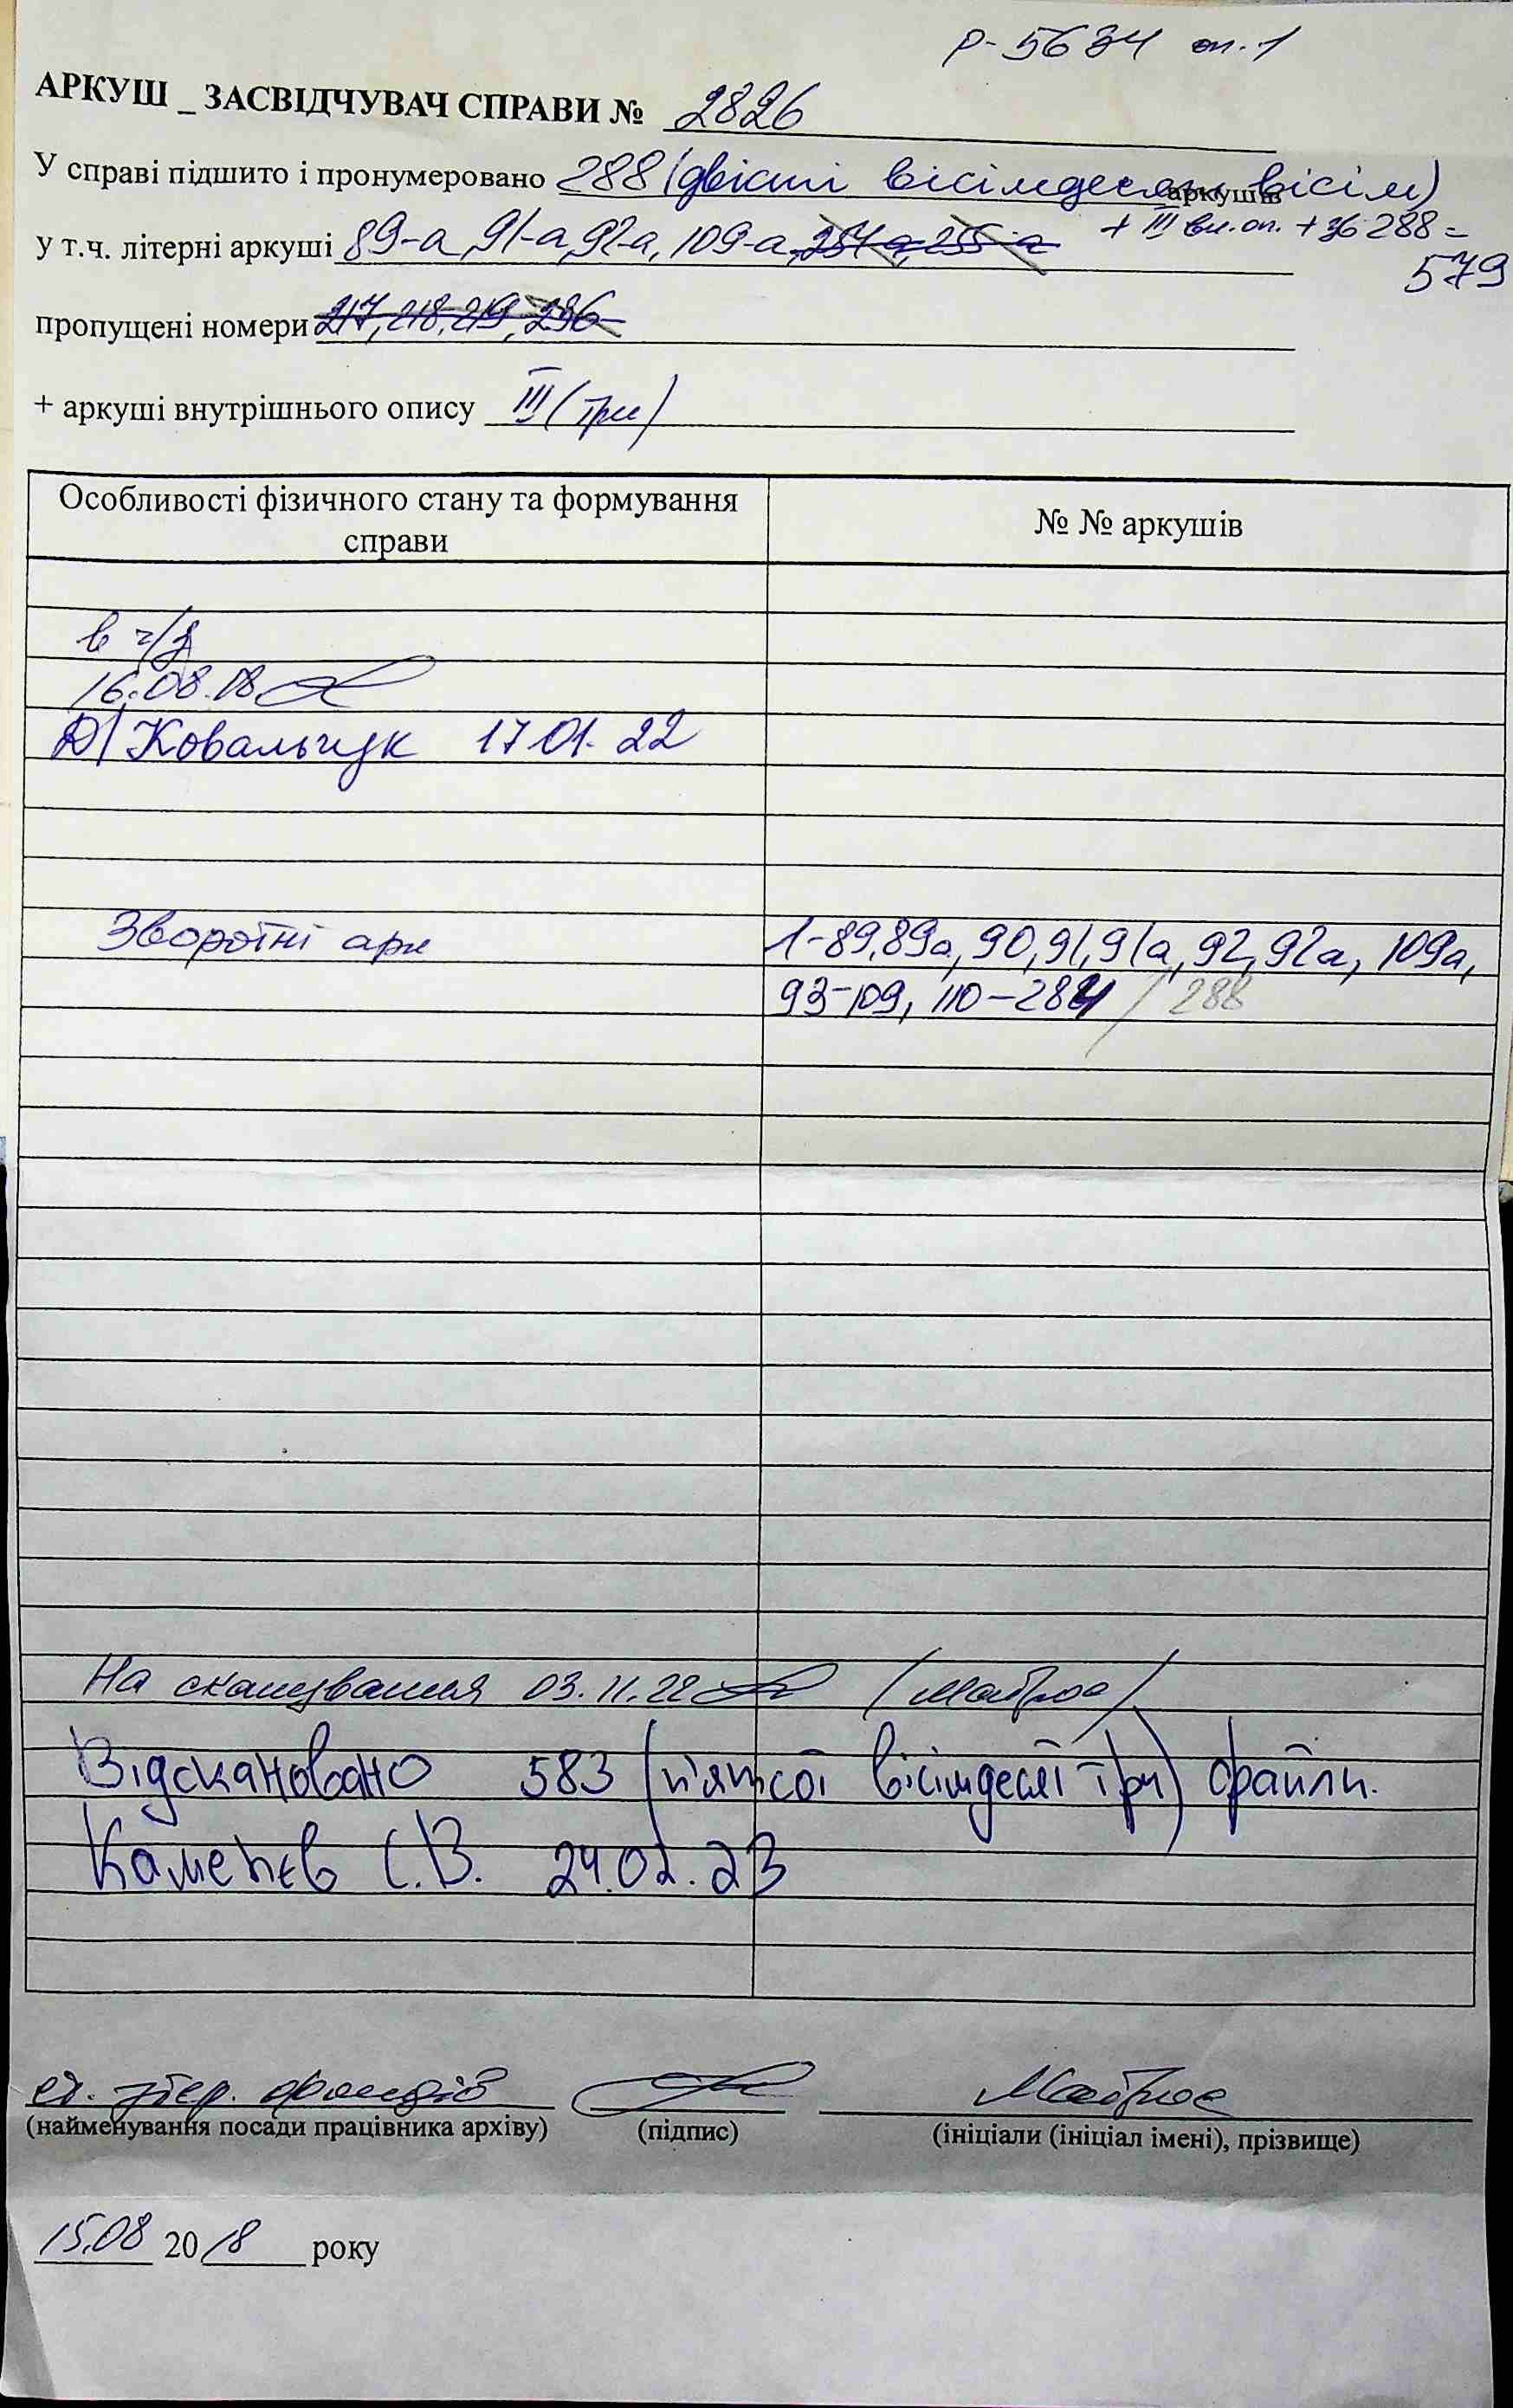 Р-5634 оп.1
АРКУШ _ ЗАСВІДЧУВАЧ СПРАВИ № 2826
У справі підшито і пронумеровано 288 (двісті вісімдесят вісім) аркушів
+ III вн. оп. + зб 288 =
у т.ч. літерні аркуші 89-а, 91-а, 92-а, 109-а, 254-а, 255-а
579
пропущені номери 217, 218, 219, 236
+ аркуші внутрішнього опису III (три)
Особливості фізичного стану та формування справи
№ № аркушів
в ч/з
16.08.18
Д/ Ковальчук 17 01. 22
Зворотні арк
1-89, 89а, 90, 91, 91а, 92, 92а, 109а,
93-109, 110-284 / 288
На сканування 03.11.22
Відскановано 583 (п'ятсот вісімдесят три) файли.
Каменєв С.В. 24.02.23
ст. збер. фондів
(найменування посади працівника архіву) (підпис) (ініціали (ініціал імені), прізвище)
15.08 2018 року